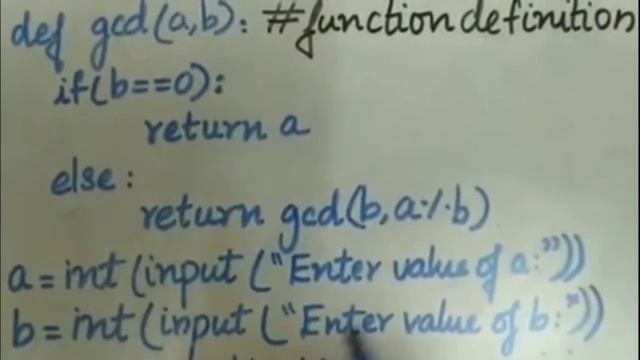 def gcd(a,b): #function definition
if(b==0):
return a
else:
return gcd(b,a%b)
a=int(input("Enter value of a:"))
b=int(input("Enter value of b:"))